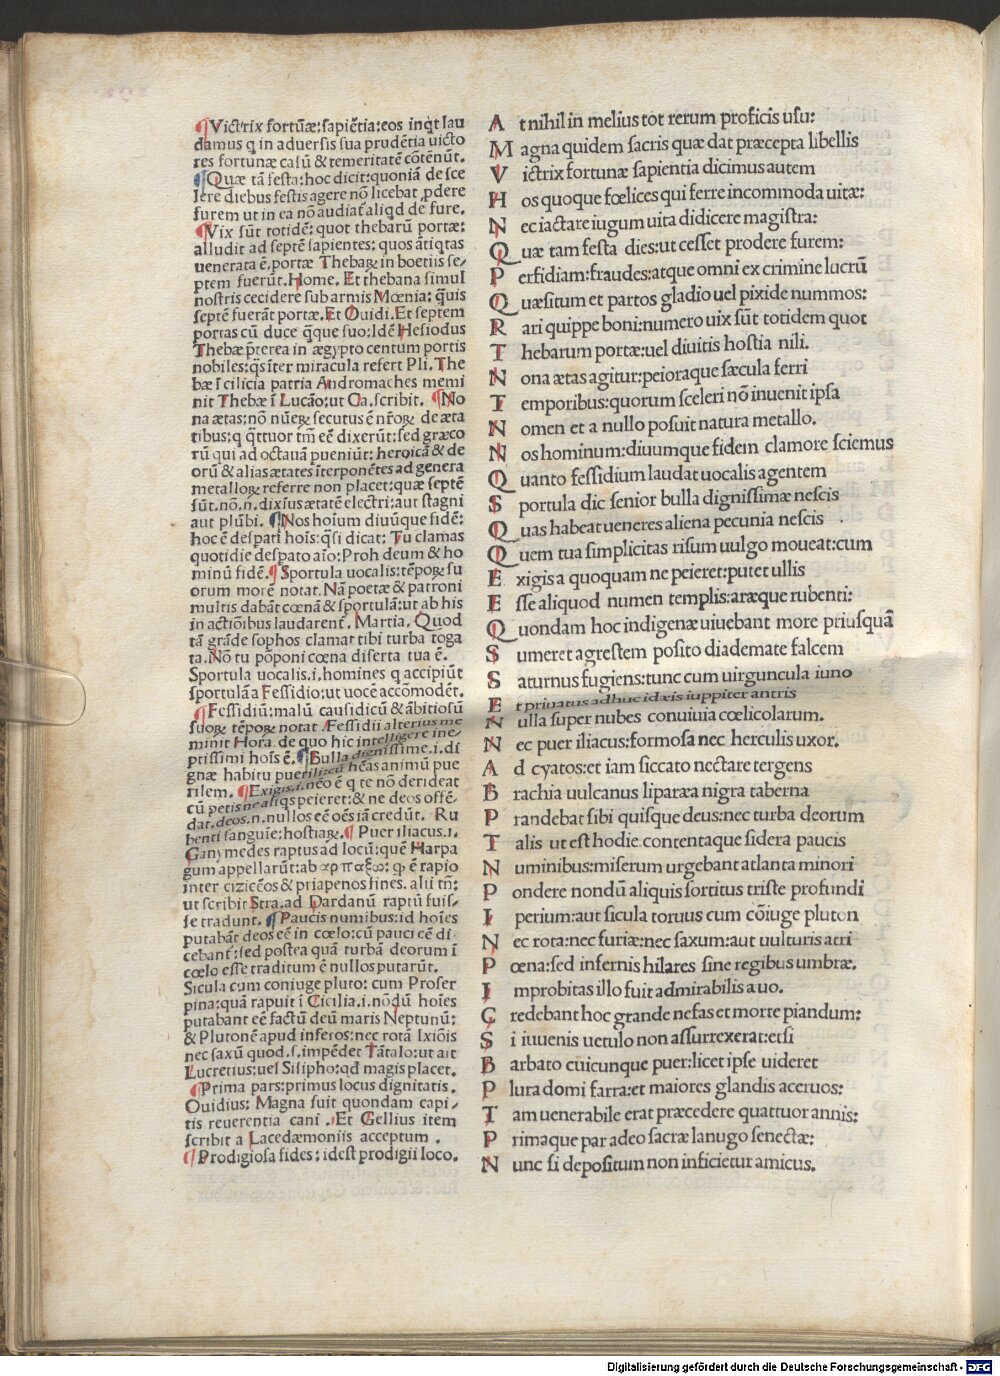 ¶Victrix fortūæ:sapiētia:eos inq̇t lau
damus q in aduersis sua prudētia uicto
res fortunæ casū & temeritatē cōtēnūt.
¶Quæ tā festa:hoc dicit:quoniā de sce
lere diebus festis agere nō licebat ꝓdere
furem ut in ea nō audiat̄ aliqd de fure.
¶Vix sūt totidē: quot thebarū portæ:
alludit ad septē sapientes: quos ātiq̇tas
uenerata ē.portæ Thebaꝝ in boetiis se/
ptem fuerūt.Home. Et thebana simul
nostris cecidere sub armis Mœnia: q̇uis
septē fuerāt portæ.Et Ouidi.Et septem
portas cū duce q̇que suo:Idē Hesiodus
Thebæ p̄terea in ægypto centum portis
nobiles:q̇s iter miracula refert Pli. The
bæ ī cilicia patria Andromaches memi
nit Thebæ ī Lucāo:ut Ca.scribit. ¶No
na ætas:nō nūeꝝ secutus ē nr̄oꝝ de æta
tibus:q q̇ttuor tm̄ eē dixerūt:sed græco
rū qui ad octauā pueniūt: heroicā & de
orū & alias ætates īterponētes ad genera
metalloꝝ referre non placet:quæ septē
sūt.nō.n.dixīus ætatē electri:aut stagni
aut plūbi. ¶Nos hoīum diuūque fidē:
hoc ē despati hoīs:q̇si dicat: Tu clamas
quotidie despato aīo:Proh deum & ho
minū fidē.¶Sportula uocalis:tēpoꝝ su
orum morē notat. Nā poetæ & patroni
multis dabāt cœnā & sportulā:ut ab his
in actiōibus laudarent̄. Martia. Quod
tā grāde sophos clamat tibi turba toga
ta.Nō tu pōponi cœna diserta tua ē.
Sportula uocalis.i.homines q accipiūt
sportulā a Fessidio;ut uocē accōmodēt.
¶Fessidiū:malū causidicū & ābitiosū
suoꝝ tēpoꝝ notat Æfessidii alterius me
minit Hora. de quo hic intelligere ine/
ptissimi hoīs ē.¶Bulla dignissime.i.di
gnæ habitu puerili:cū hēas animū pue
rilem. ¶Exigis.i.nēo ē q te nō derideat
cū petis ne aliqs peieret:& ne deos offē/
dat.deos.n.nullos eē oēs iā credūt. Ru
benti sanguīe;hostiaꝝ.¶ Puer iliacus.i.
Ganymedes raptus ad locū:quē Harpa
gum appellarūt:ab αρπαξω: qꝫ ē rapio
inter ciziceōs & priapenos fines. alii tn̄:
ut scribit Stra.ad Dardanū raptū fuis/
se tradunt. ¶Paucis numibus:id hoīes
putabāt deos eē in cœlo:cū pauci eē di/
cebant̄:sed postea quā turbā deorum ī
cœlo esse traditum ē nullos putarūt.
Sicula cum coniuge pluto: cum Proser
pina:quā rapuit ī Cicilia.i.nōdū hoīes
putabant eē factū deū maris Neptunū:
& Plutonē apud inferos:nec rotā Ixiōis
nec saxū quod.s.impēdet Tātalo:ut ait
Lucretius:uel Sisipho:qd magis placet.
¶Prima pars:primus locus dignitatis.
Ouidius: Magna fuit quondam capi/
tis reuerentia cani . Et Gellius item
scribit a Lacedæmoniis acceptum .
¶Prodigiosa fides: idest prodigii loco.
A t nihil in melius tot rerum proficis usu:
M agna quidem sacris quæ dat præcepta libellis
V ictrix fortunæ sapientia dicimus autem
H os quoque fœlices qui ferre incommoda uitæ:
N ec iactare iugum uita didicere magistra:
Q uæ tam festa dies:ut cesset prodere furem:
P erfidiam:fraudes:atque omni ex crimine lucrū
Q uæsitum et partos gladio uel pixide nummos:
R ari quippe boni:numero uix sūt totidem quot
T hebarum portæ:uel diuitis hostia nili.
N ona ætas agitur:peioraque sæcula ferri
T emporibus:quorum sceleri nō inuenit ipsa
N omen et a nullo posuit natura metallo.
N os hominum:diuumque fidem clamore sciemus
Q uanto fessidium laudat uocalis agentem
S portula dic senior bulla dignissimæ nescis
Q uas habeat ueneres aliena pecunia nescis
Q uem tua simplicitas risum uulgo moueat:cum
E xigis a quoquam ne peieret:putet ullis
E sse aliquod numen templis:aræque rubenti:
Q uondam hoc indigenæ uiuebant more priusquā
S umeret agrestem posito diademate falcem
S aturnus fugiens:tunc cum uirguncula iuno
E t priuatus adhuc idæis iuppiter antris
N ulla super nubes conuiuia cœlicolarum.
N ec puer iliacus:formosa nec herculis uxor.
A d cyatos:et iam siccato nectare tergens
B rachia uulcanus liparæa nigra taberna
P randebat sibi quisque deus:nec turba deorum
T alis ut est hodie contentaque sidera paucis
N uminibus:miserum urgebant atlanta minori
P ondere nondū aliquis sortitus triste profundi
I perium:aut sicula toruus cum cōiuge pluton
N ec rota:nec furiæ:nec saxum:aut uulturis atri
P œna:sed infernis hilares sine regibus umbræ.
I mprobitas illo fuit admirabilis æuo.
C redebant hoc grande nefas et morte piandum:
S i iuuenis uetulo non assurrexerat:etsi
B arbato cuicunque puer:licet ipse uideret
P lura domi farra:et maiores glandis aceruos:
T am uenerabile erat præcedere quattuor annis:
P rimaque par adeo sacræ lanugo senectæ:
N unc si depositum non inficietur amicus.
Digitalisierung gefördert durch die Deutsche Forschungsgemeinschaft - DFG